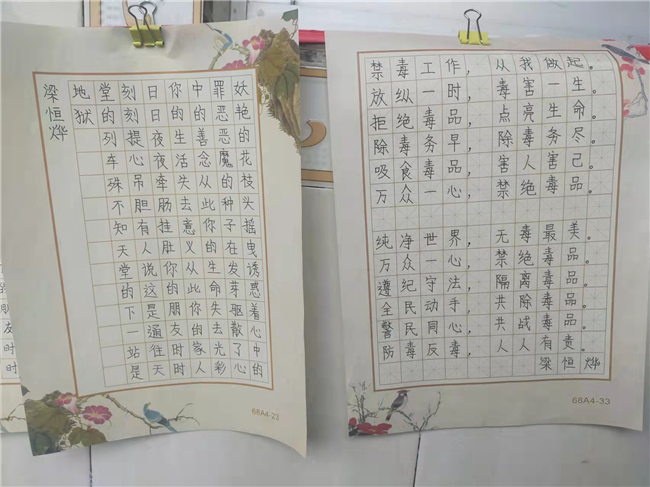 妖艳的花枝头摇曳诱惑着心中的
罪恶恶魔的种子在发芽驱散了心
中的善念从此你的生命失去光彩
你的生活失去意义从此你的家人
日日夜夜牵肠挂肚你的朋友时时
刻刻提心吊胆有人说这是通往天
堂的列车殊不知天堂的下一站是
地狱
梁恒烨
68A4-23
禁毒工作，从我做起。
放纵一时，毒害一生。
拒绝毒品，点亮生命。
除毒务早，除毒务尽。
吸食毒品，害人害己。
万众一心，禁绝毒品。
纯净世界，无毒最美。
万众一心，禁绝毒品。
遵纪守法，隔离毒品。
全民动手，共除毒品。
警民同心，共战毒品。
防毒反毒，人人有责。
梁恒烨
68A4-33